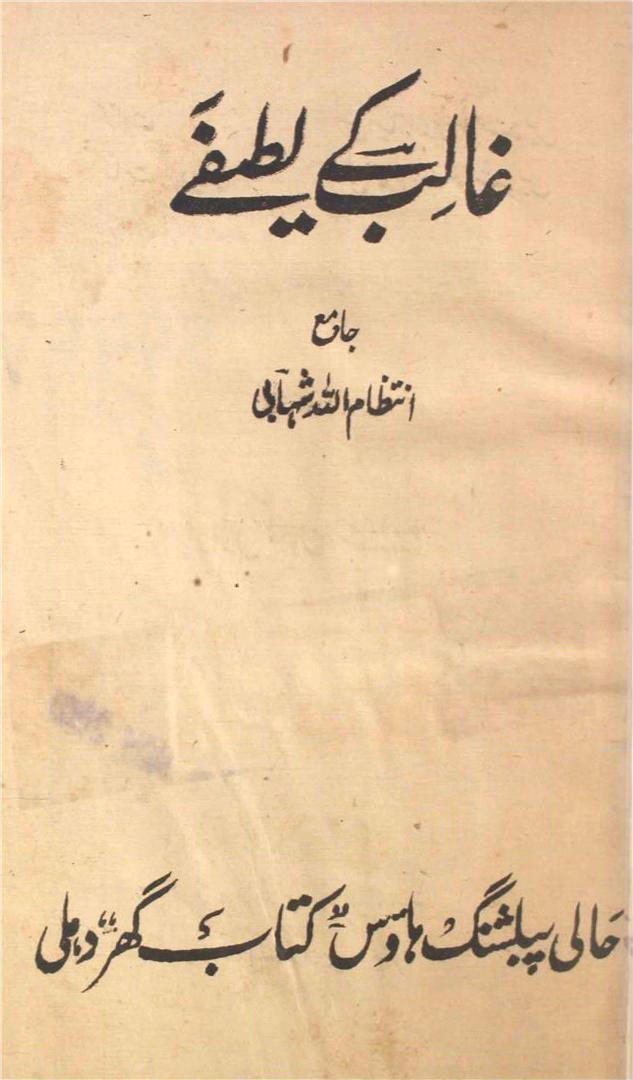 غالب کے لطیفے
جامع
انتظام اللہ شہابی
حالی پبلشنگ ہاؤس "کتاب گھر" دہلی